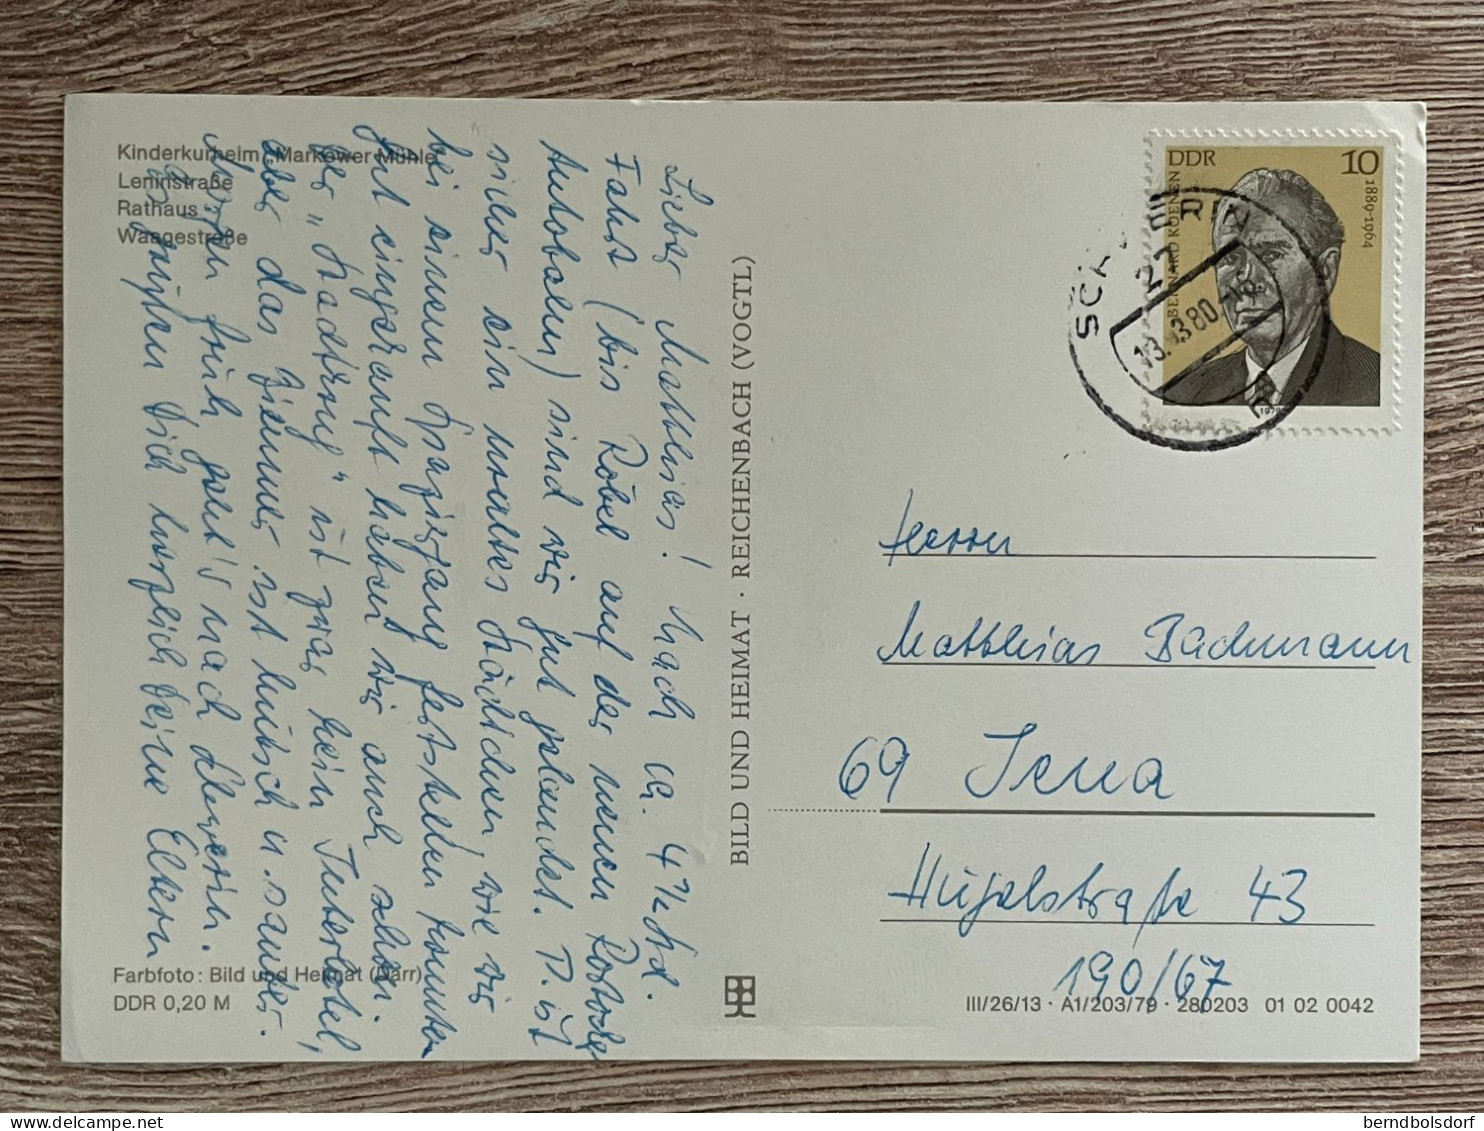 Kinderkurheim „Markower Mühle“
Leninstraße
Rathaus
Waagestraße
Lieber Matthias! Nach ca. 4 ½ Std.
Fahrt (bis Röbel auf der neuen Rostocker
Autobahn) sind wir gut gelandet. P. ist
sicher ein uraltes Städtchen, wie wir
bei einem Spaziergang feststellen konnten
Gut eingerauft haben wir auch schon.
Der „Stadtkrug“ ist zwar kein Interhotel,
aber das Zimmer ist hübsch u. sauber.
Morgen früh geht's nach Schwerin.
Es grüßen Dich herzlich Deine Eltern
Farbfoto: Bild und Heimat (Darr)
DDR 0,20 M
BILD UND HEIMAT · REICHENBACH (VOGTL)
DDR 10
BERNARD KOENEN
1889-1964
1979
SCHWERIN
27
13.3.80
Herrn
Matthias Bachmann
69 Jena
Hügelstraße 43
190/67
III/26/13 · A1/203/79 · 280203 01 02 0042
delcampe.net
berndbolsdorf